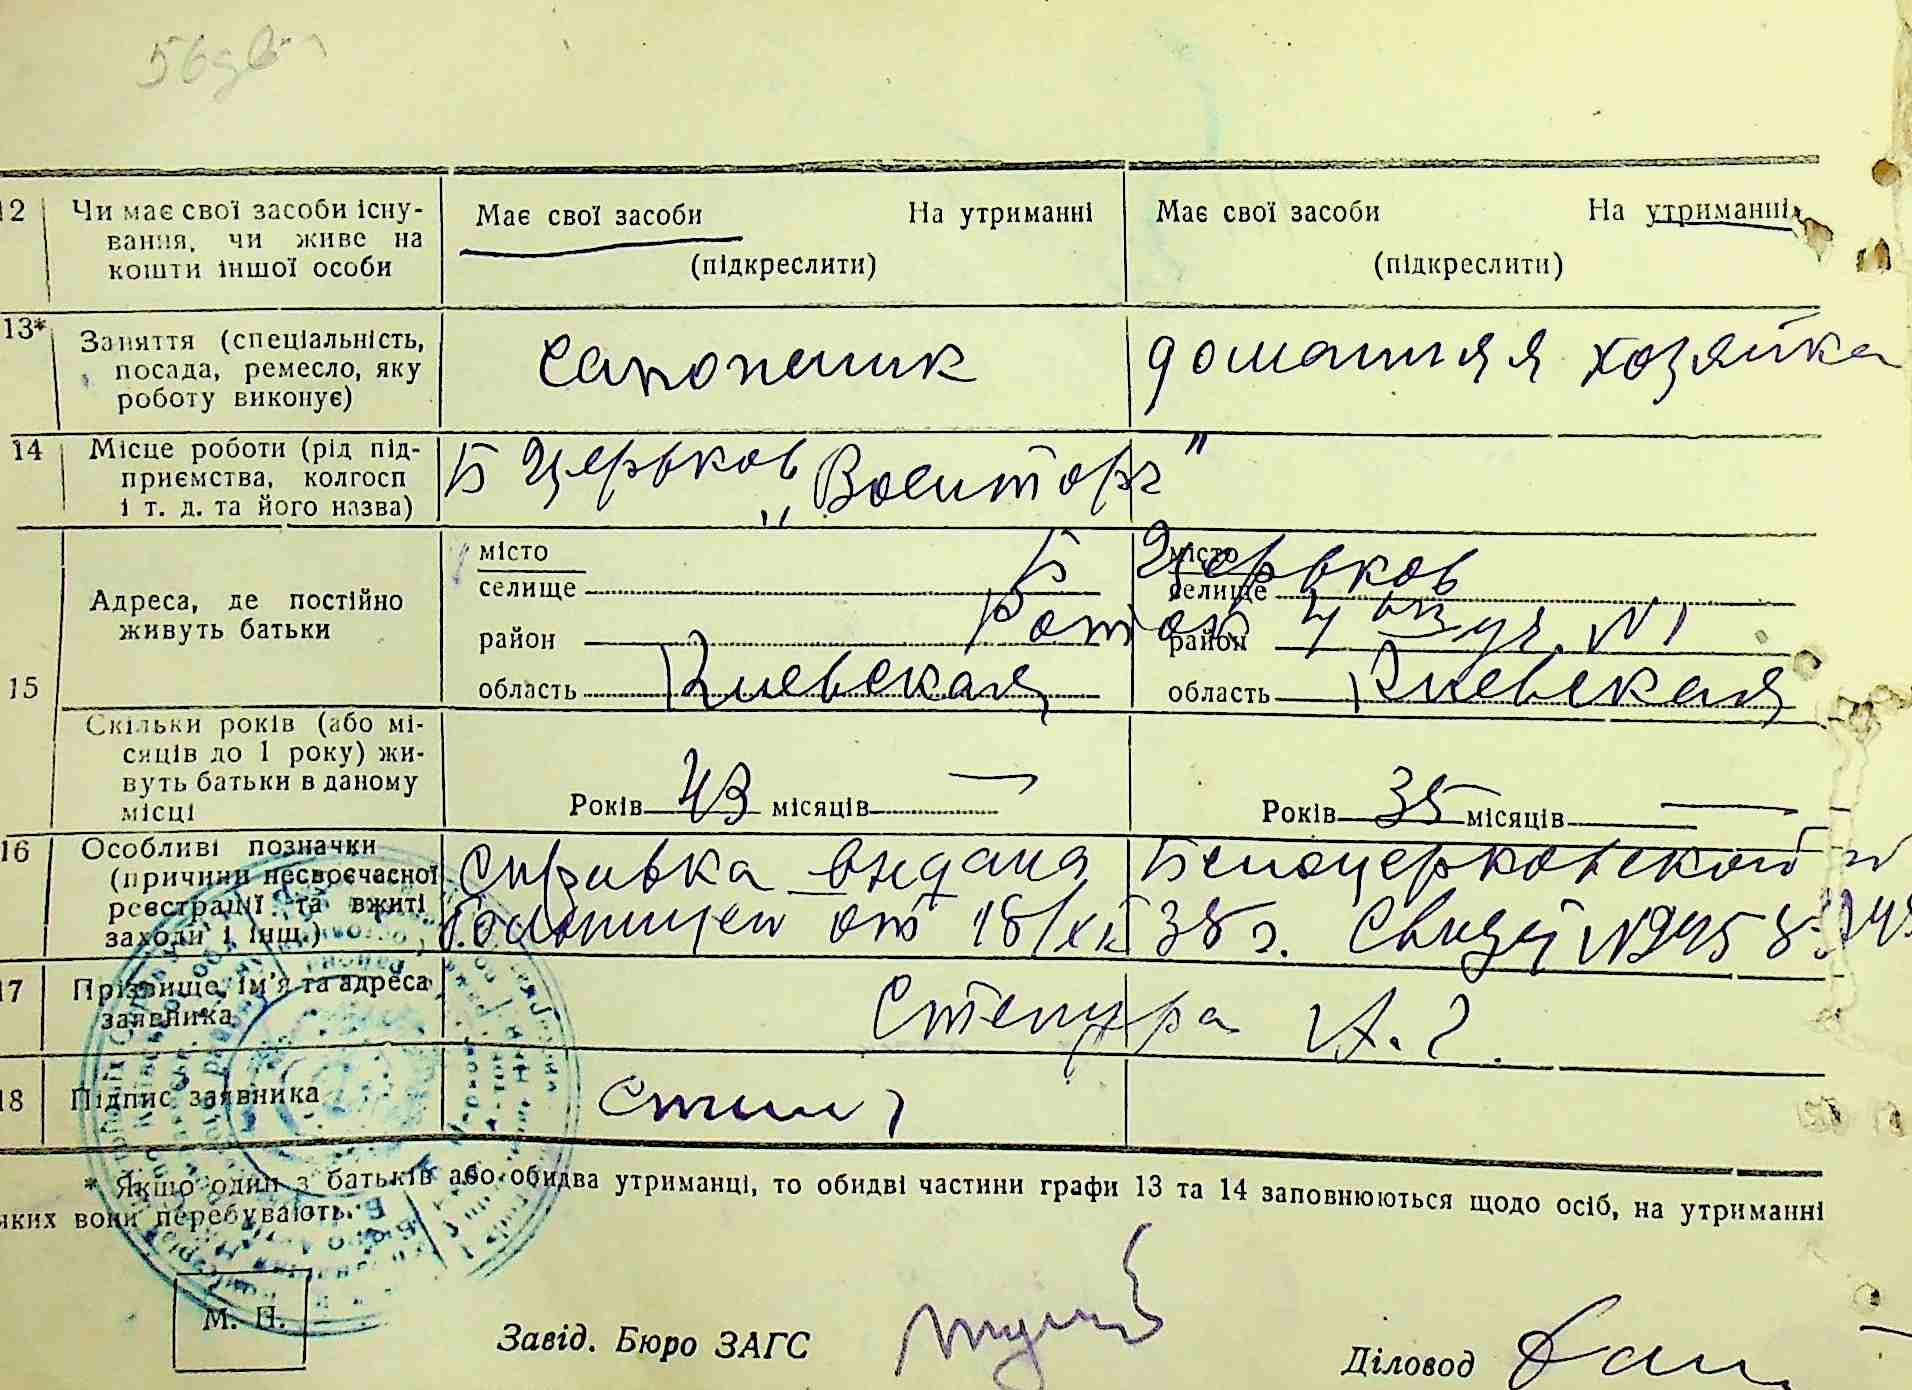 12 Чи має свої засоби існу- Має свої засоби На утриманні Має свої засоби На утриманні
вання, чи живе на
кошти іншої особи (підкреслити) (підкреслити)
13* Заняття (спеціальність,
посада, ремесло, яку сапожник домашняя хозяйка
роботу виконує)
14 Місце роботи (рід під- Б Церьков
приємства, колгосп „Военторг"
і т. д. та його назва)
місто Б Церьков місто
селище селище
Адреса, де постійно
живуть батьки район Роток уч. №1 район
15 область Киевская область Киевская
Скільки років (або мі-
сяців до 1 року) жи-
вуть батьки в даному
місці Років 43 місяців — Років 35 місяців —
16 Особливі позначки Справка видана Белоцерковской
(причини несвоєчасної
реєстрації та вжиті от
заходи і інш.)
17 Прізвище, ім'я та адреса Степура А. Г.
заявника
18 Підпис заявника
* Якщо один з батьків або обидва утриманці, то обидві частини графи 13 та 14 заповнюються щодо осіб, на утриманні
яких вони перебувають.
М. П.
Завід. Бюро ЗАГС
Діловод